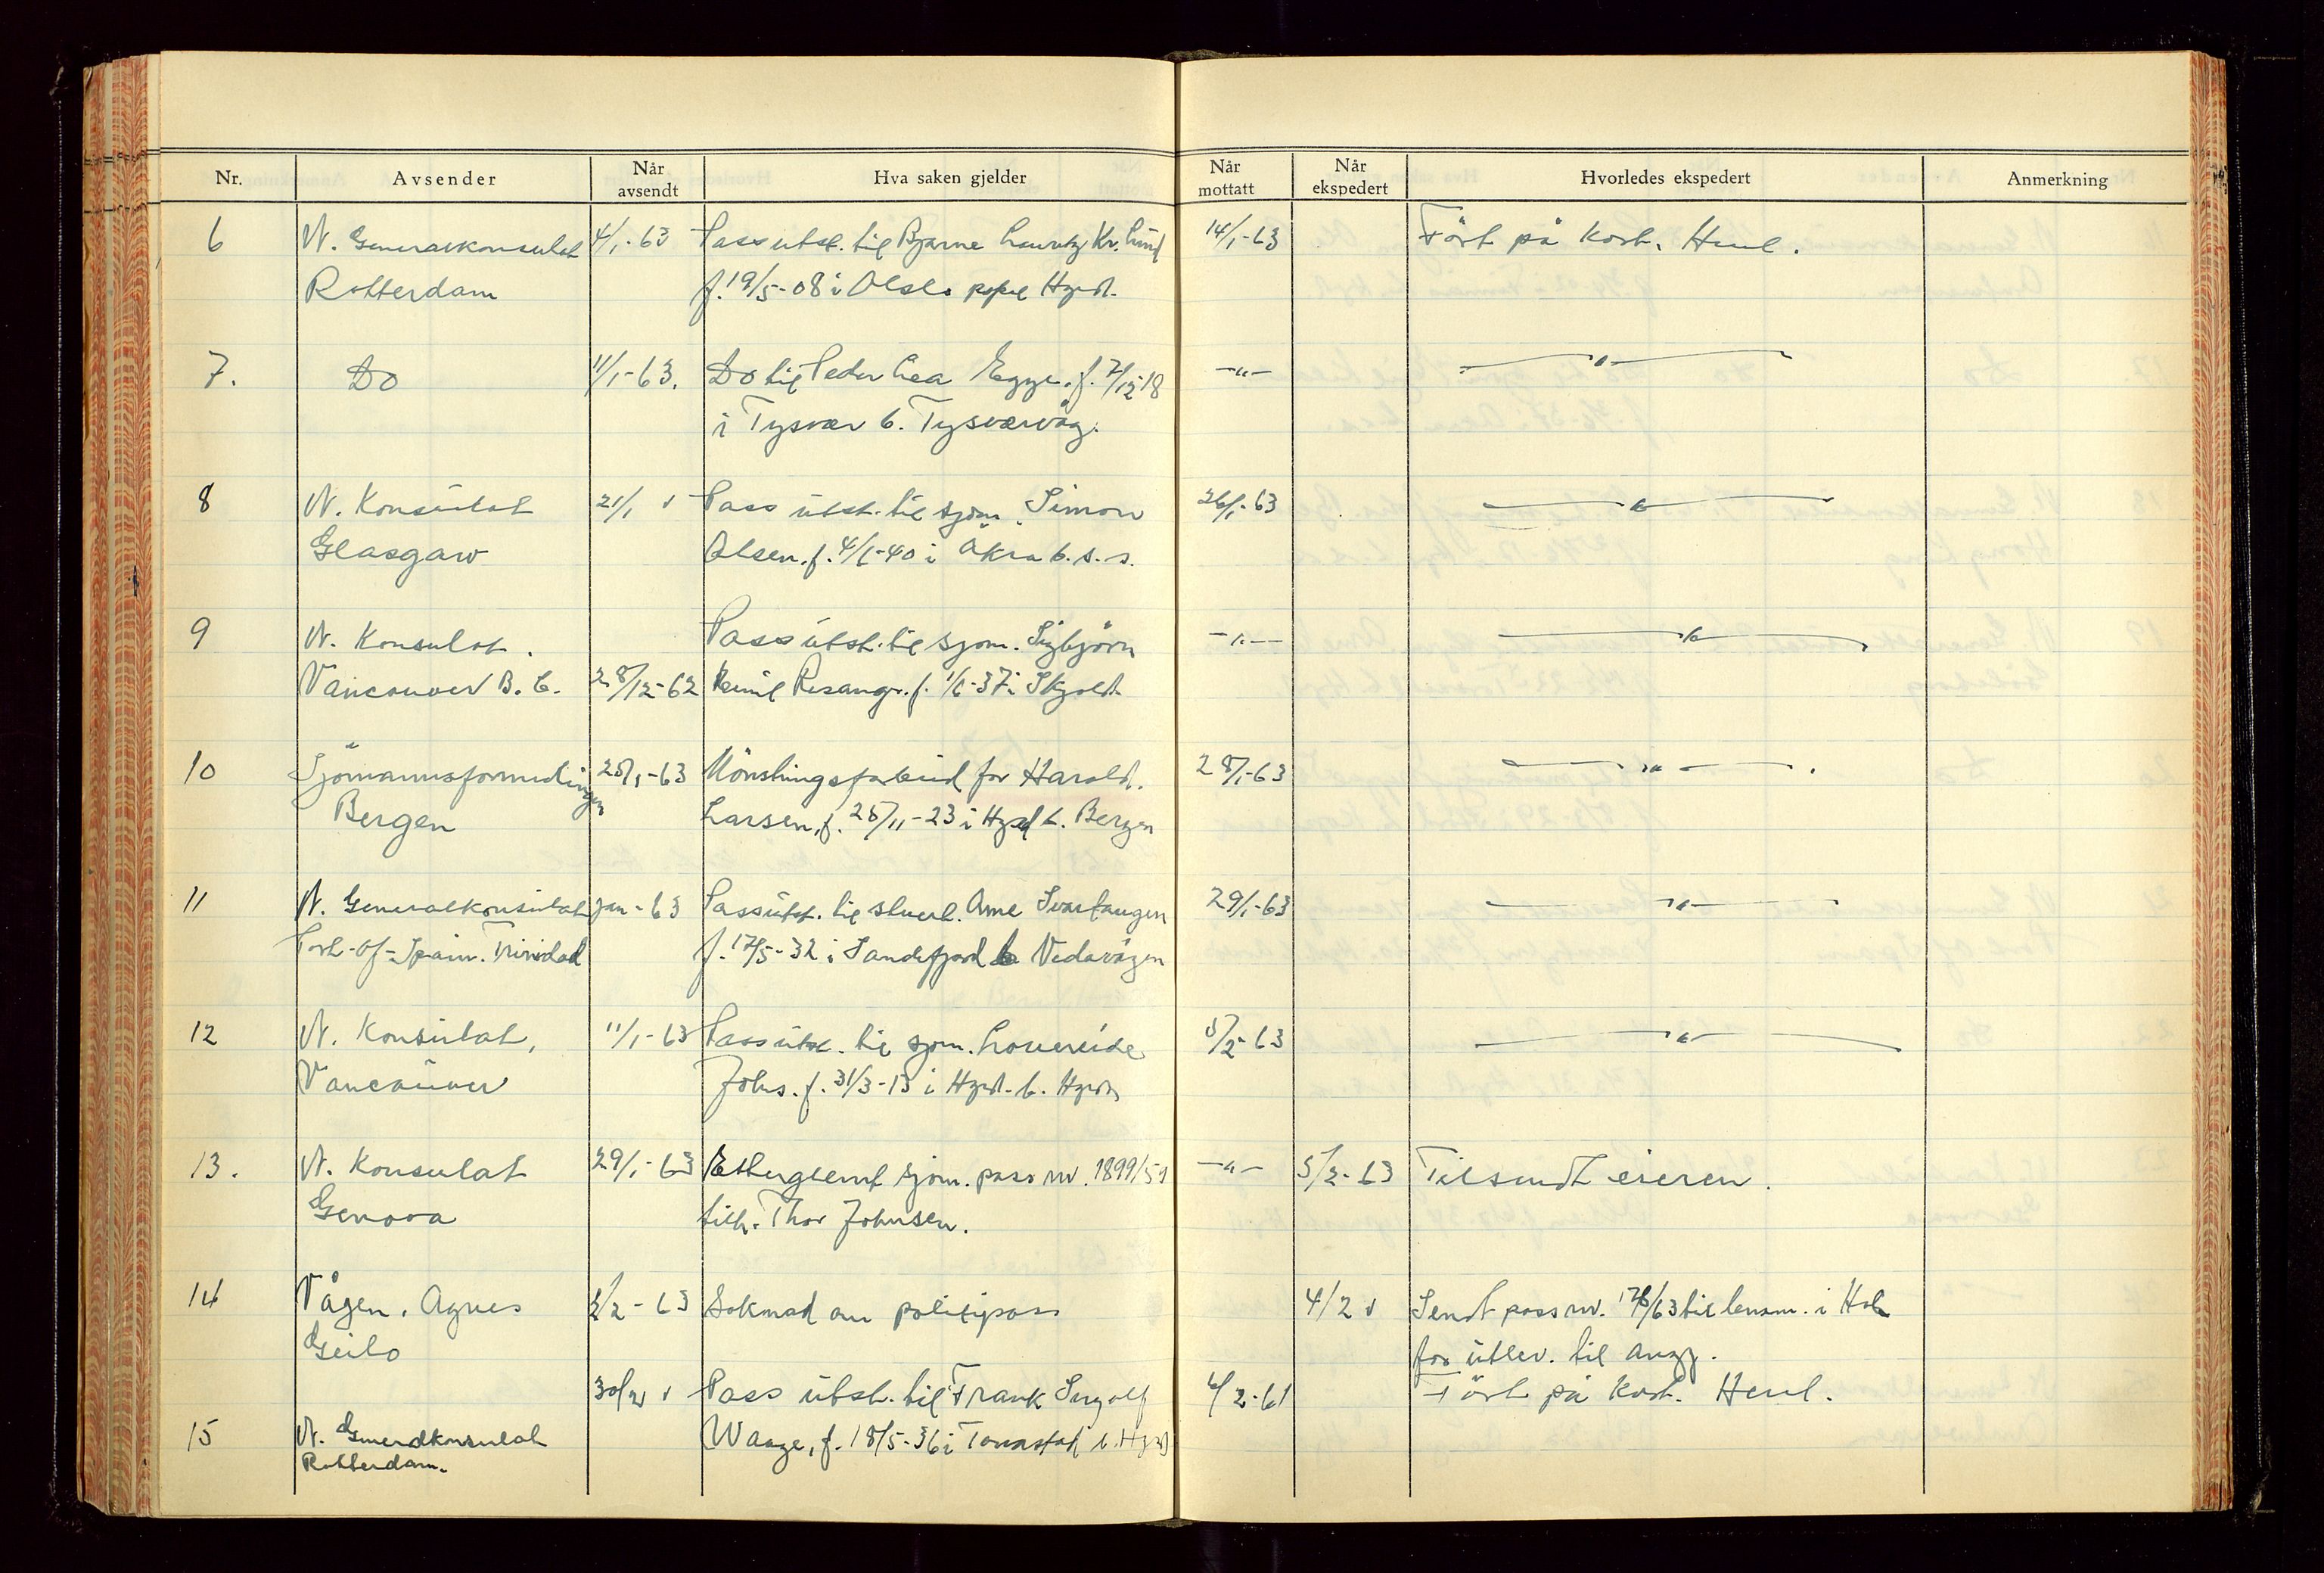 Nr. Avsender Når avsendt Hva saken gjelder Når mottatt Når ekspedert Hvorledes ekspedert Anmerkning
6 N. Generalkonsulat 4/1-63 Pass utst. til Bjarne Lauritz Kr. Lund 14/1-63 Ført på kort. Henl.
Rotterdam f. 19/5-08 i Hgsd.
7. Do 11/1-63. Do til Peder Lea Egge. f. 7/12-18 -"- -"-
i Tysvær b. Tysværvåg.
8 N. Konsulat 21/1 " Pass utst. til sjøm. Simon 26/1-63 -"-
Glasgaw Olsen. f. 4/6-40 i Åkra b. s. s.
9 N. Konsulat. Pass utst. til sjøm. Sigbjørn -"- -"-
Vancouver B. C. 28/12-62 Emil Risanger. f. 1/6-37 i Skjold.
10 Sjømannsformidlingen 25/1-63 Mønstringsforbud for Harald. 28/1-63 -"-
Bergen Larsen, f. 25/11-23 i Hgsd b. Bergen
11 N. Generalkonsulat jan-63 Pass utst. til stuert. Arne Svartangen 29/1-63 -"-
Port-of-Spain. Trinidad f. 17/5-32 i Sandefjord b Vedavågen
12 N. Konsulat, 11/1-63 Pass utst. til sjøm. 5/2-63 -"-
Vancouver Johs. f. 31/3-13 i Hgsd. b. Hgsd.
13. N. Konsulat 29/1-63 Etterglemt sjøm. pass nr. 1899/59 -"- 5/2-63 Tilsendt eieren.
Genova tilh. Thor Johnsen.
14 Vågen. Agnes 2/2-63 Søknad om politipass 4/2 " Sendt pass nr. 176/63 til lensm. i Hol
Geilo for utlev. til angj.
30/1 " Pass utst. til Frank Ingolf 6/2-61 Ført på kort. Henl.
15 N. Generalkonsulat Waage, f. 18/5-36 i Torvastad b. Hgsd
Rotterdam.